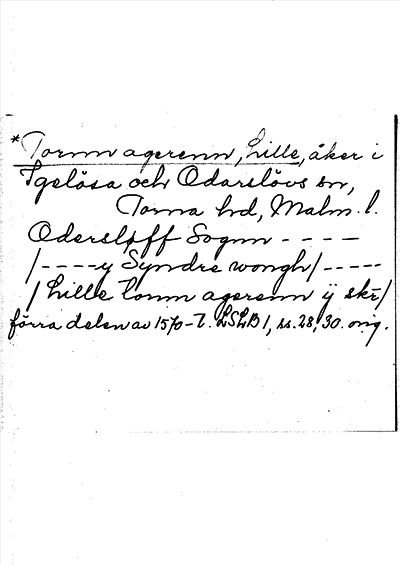 *Tormagerenn, Lille, åker i
Igelösa och Odarslövs sn,
Torna hd, Malm. l.
Odersløff Sognn - - - -
/ - - - - y Syndre wongh / - - - - -
/ Lille Tormagerenn ÿ skr /
förra delen av 1570-t. LSLB 1, ss. 28, 30. orig.